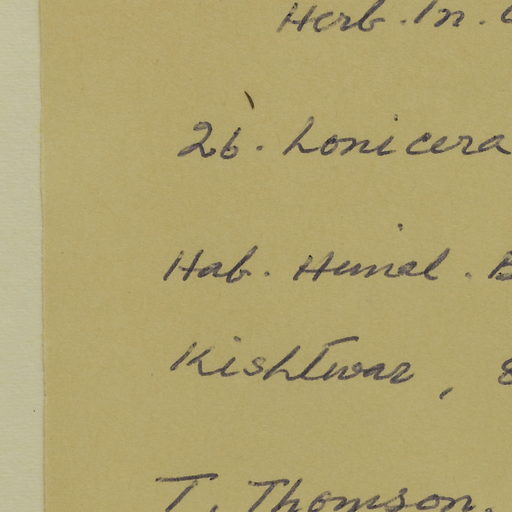 Herb. In.
26. Lonicera
Hab. Himal.
Kishtwar,
T. Thomson.